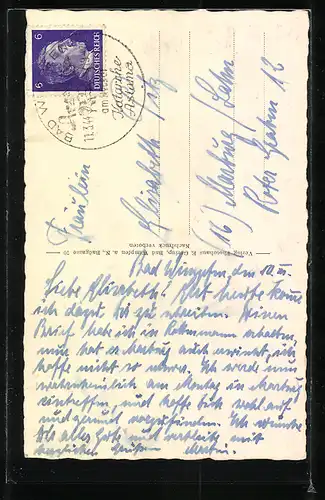 6 6
DEUTSCHES REICH
BAD W
11.3.44
Katarrhe
Asthma
Fräulein
Elisabeth
(16) Marburg / Lahn
Roter Graben 12
Nachdruck verboten
Bad Wimpfen, den 10. III.
Liebe Elisabeth! Erst heute komme
ich dazu Dir zu schreiben. Deinen
Brief habe ich in erhalten
nun hat es Marburg auch erwischt, ich
hoffe nicht so arg. Ich werde nun
wahrscheinlich am Montag in Marburg
eintreffen, und hoffe Dich wohlauf
und gesund vorzufinden. Ich wünsche
Dir alles Gute und verbleibe mit
herzlichen Grüßen